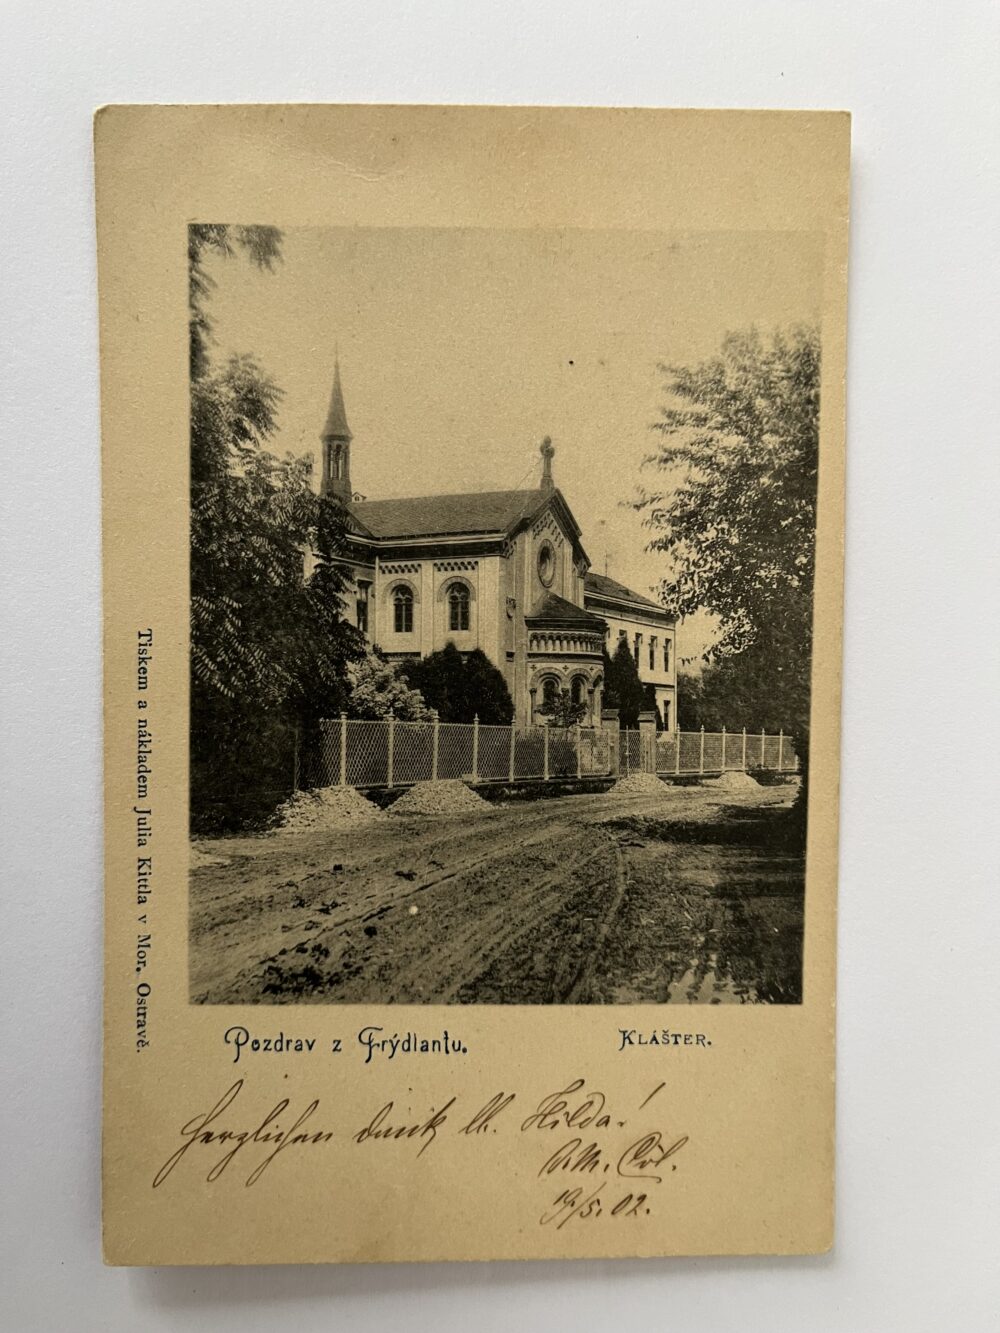 Tiskem a nákladem Julia Kittla v Mor. Ostravě.
Pozdrav z Frýdlantu. KLÁŠTER.
Herzlichen Dank lb. Hilda!
19/5. 02.